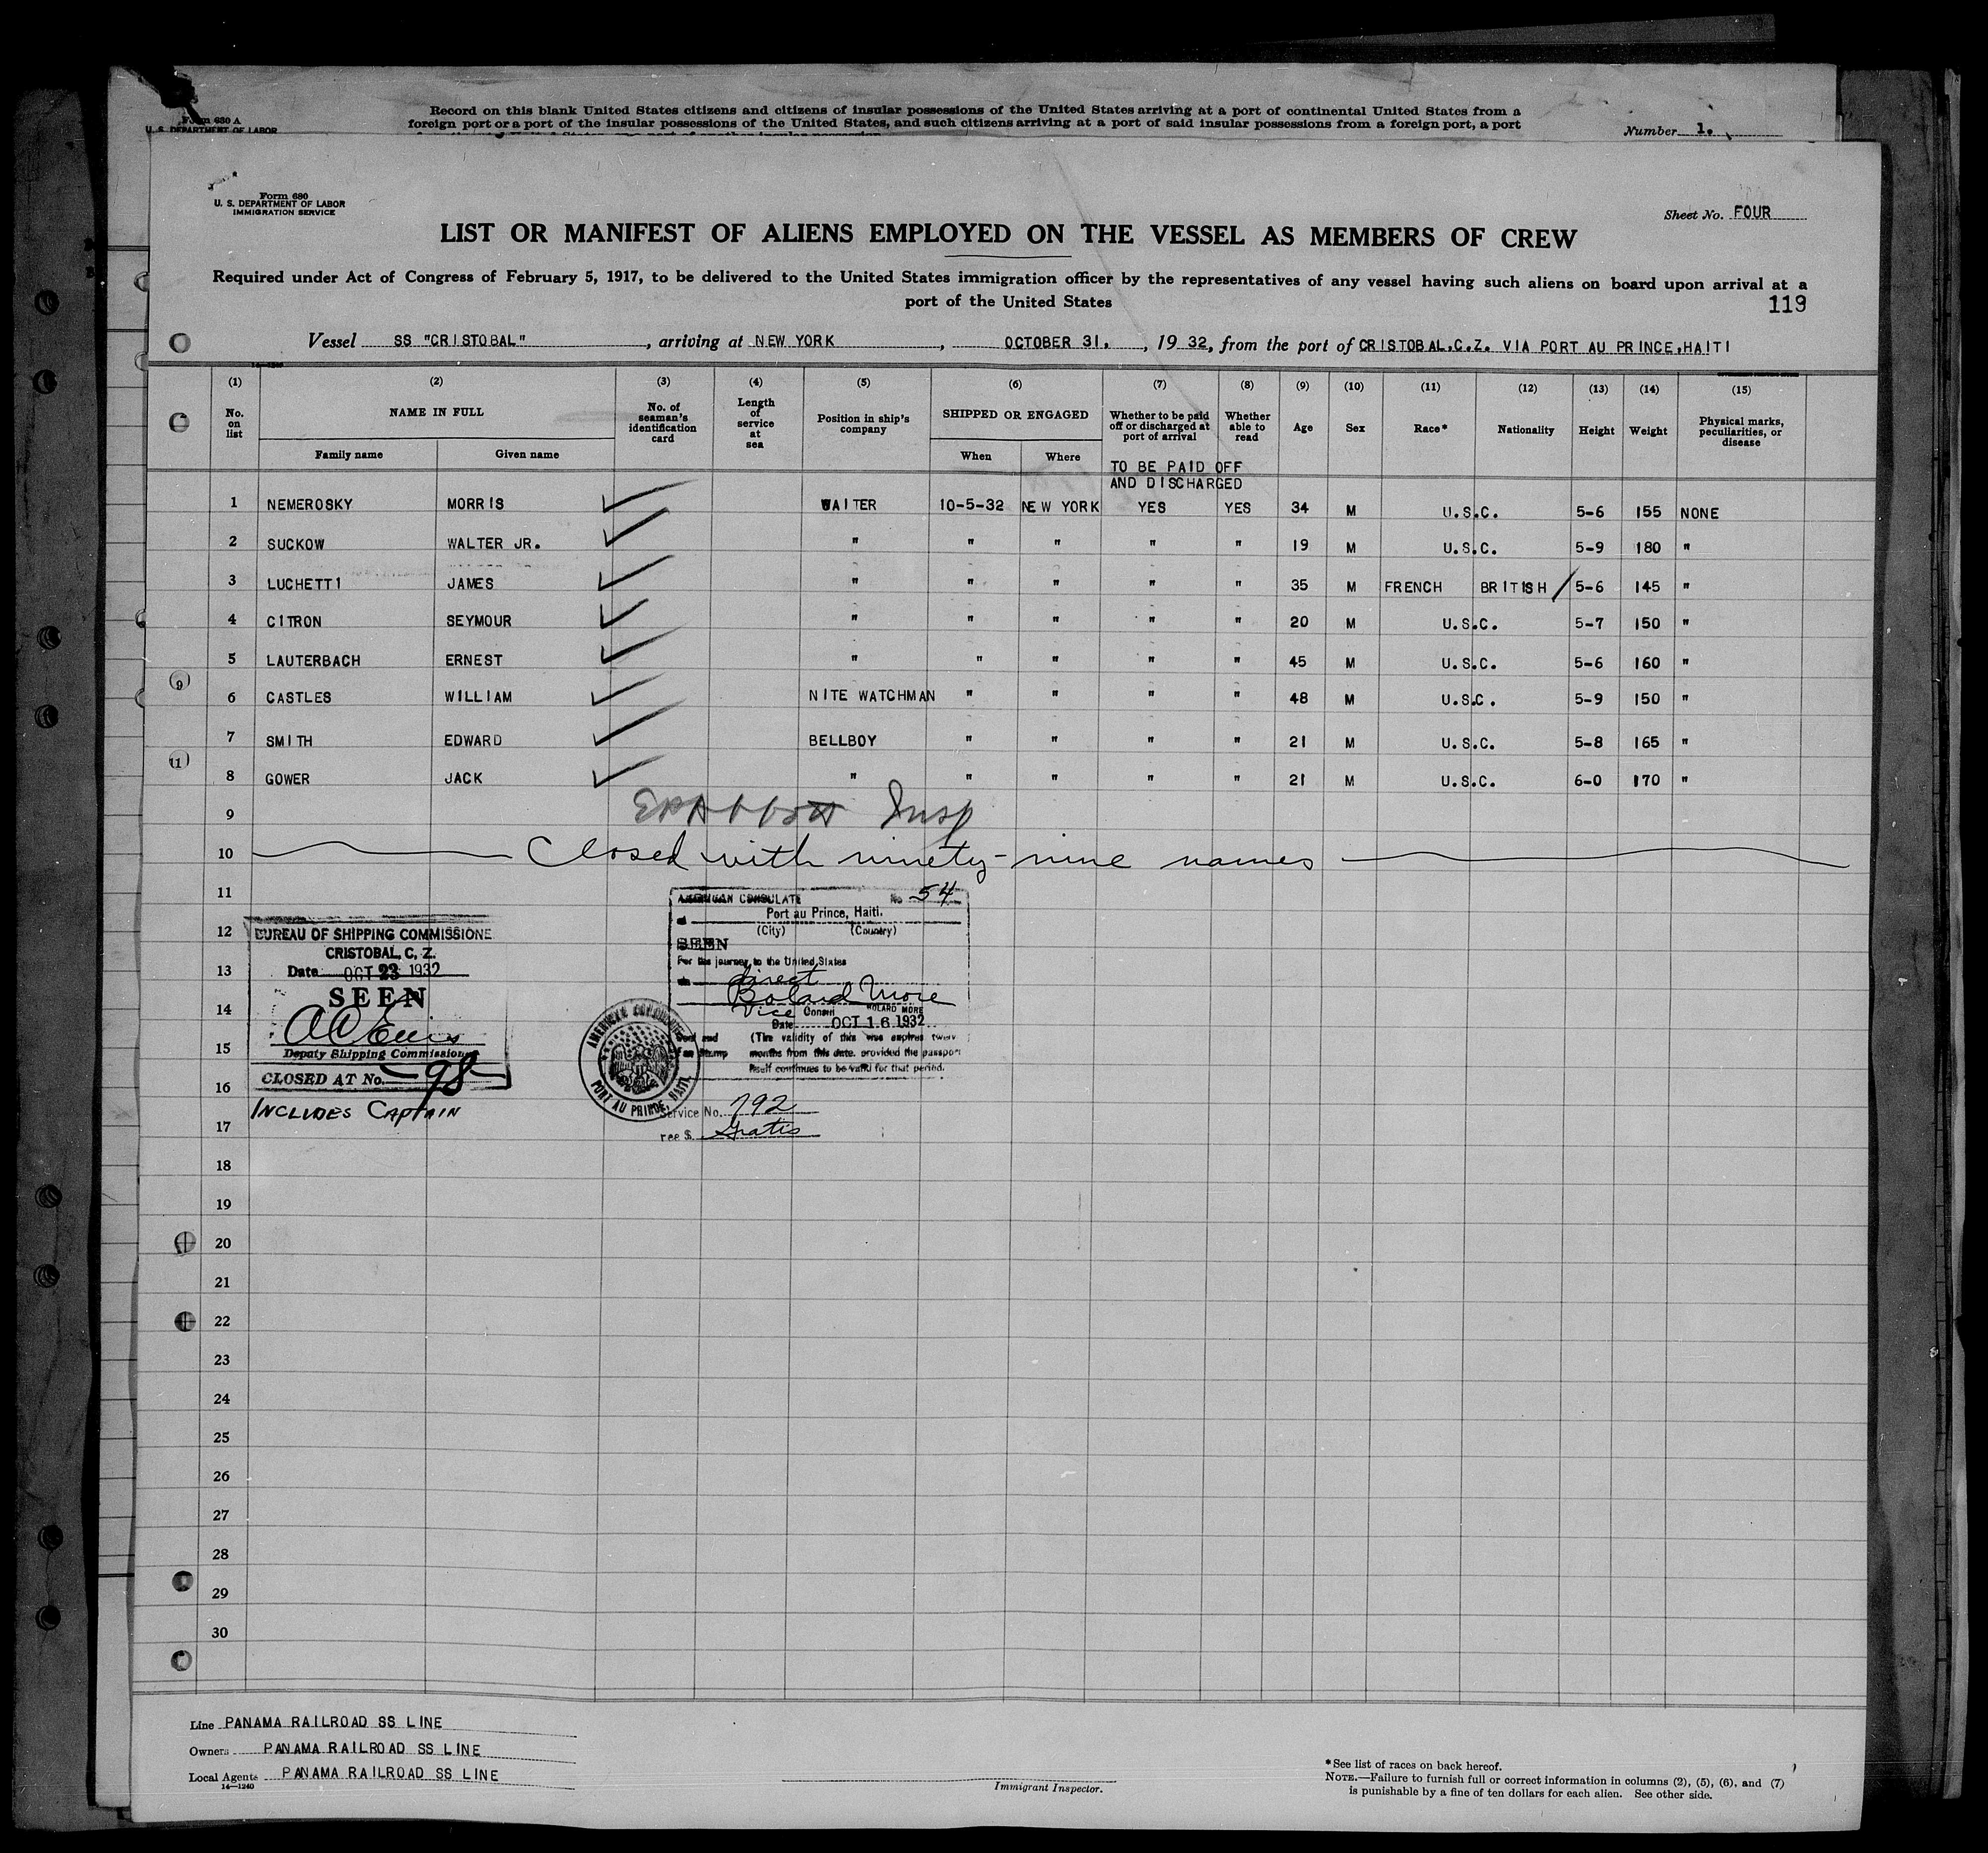 Form 630 A
U. S. DEPARTMENT OF LABOR
Record on this blank United States citizens and citizens of insular possessions of the United States arriving at a port of continental United States from a
foreign port or a port of the insular possessions of the United States, and such citizens arriving at a port of said insular possessions from a foreign port, a port
Number 1.
Form 680
U. S. DEPARTMENT OF LABOR
IMMIGRATION SERVICE
Sheet No. FOUR
LIST OR MANIFEST OF ALIENS EMPLOYED ON THE VESSEL AS MEMBERS OF CREW
Required under Act of Congress of February 5, 1917, to be delivered to the United States immigration officer by the representatives of any vessel having such aliens on board upon arrival at a
port of the United States
119
Vessel SS "CRISTOBAL", arriving at NEW YORK, OCTOBER 31, 1932, from the port of CRISTOBAL.C.Z. VIA PORT AU PRINCE.HAITI
(1) (2) (3) (4) (5) (6) (7) (8) (9) (10) (11) (12) (13) (14) (15)
No. on list NAME IN FULL No. of seaman's identification card Length of service at sea Position in ship's company SHIPPED OR ENGAGED Whether to be paid off or discharged at port of arrival Whether able to read Age Sex Race* Nationality Height Weight Physical marks, peculiarities, or disease
Family name Given name When Where
TO BE PAID OFF
AND DISCHARGED
1 NEMEROSKY MORRIS WAITER 10-5-32 NEW YORK YES YES 34 M U.S.C. 5-6 155 NONE
2 SUCKOW WALTER JR. " " " " " 19 M U.S.C. 5-9 180 "
3 LUCHETTI JAMES " " " " " 35 M FRENCH BRITISH 5-6 145 "
4 CITRON SEYMOUR " " " " " 20 M U.S.C. 5-7 150 "
5 LAUTERBACH ERNEST " " " " " 45 M U.S.C. 5-6 160 "
9
6 CASTLES WILLIAM NITE WATCHMAN " " " " 48 M U.S.C. 5-9 150 "
7 SMITH EDWARD BELLBOY " " " " 21 M U.S.C. 5-8 165 "
11
8 GOWER JACK " " " " " 21 M U.S.C. 6-0 170 "
9 Insp
10 Closed with ninety-nine names
11
12
13
14
15
16
17
18
19
20
21
22
23
24
25
26
27
28
29
30
BUREAU OF SHIPPING COMMISSIONE
CRISTOBAL, C. Z.
Date OCT 23 1932
SEEN
Deputy Shipping Commissioner
CLOSED AT No. 98
INCLUDES CAPTAIN
AMERICAN CONSULATE No 54
at Port au Prince, Haiti.
(City) (Country)
SEEN
For the journey to the United States
direct
Boland More
Vice Consul BOLARD MORE
Date OCT 16 1932
Seal and (The validity of this visa expires twelv
Fee Stamp months from this date, provided the passport
itself continues to be valid for that period.
AMERICAN CONSULATE
PORT AU PRINCE, HAITI.
Service No. 792
Fee $ Gratis
Line PANAMA RAILROAD SS LINE
Owners PANAMA RAILROAD SS LINE
Local Agents PANAMA RAILROAD SS LINE
14—1240
Immigrant Inspector.
*See list of races on back hereof.
NOTE.—Failure to furnish full or correct information in columns (2), (5), (6), and (7)
is punishable by a fine of ten dollars for each alien. See other side.